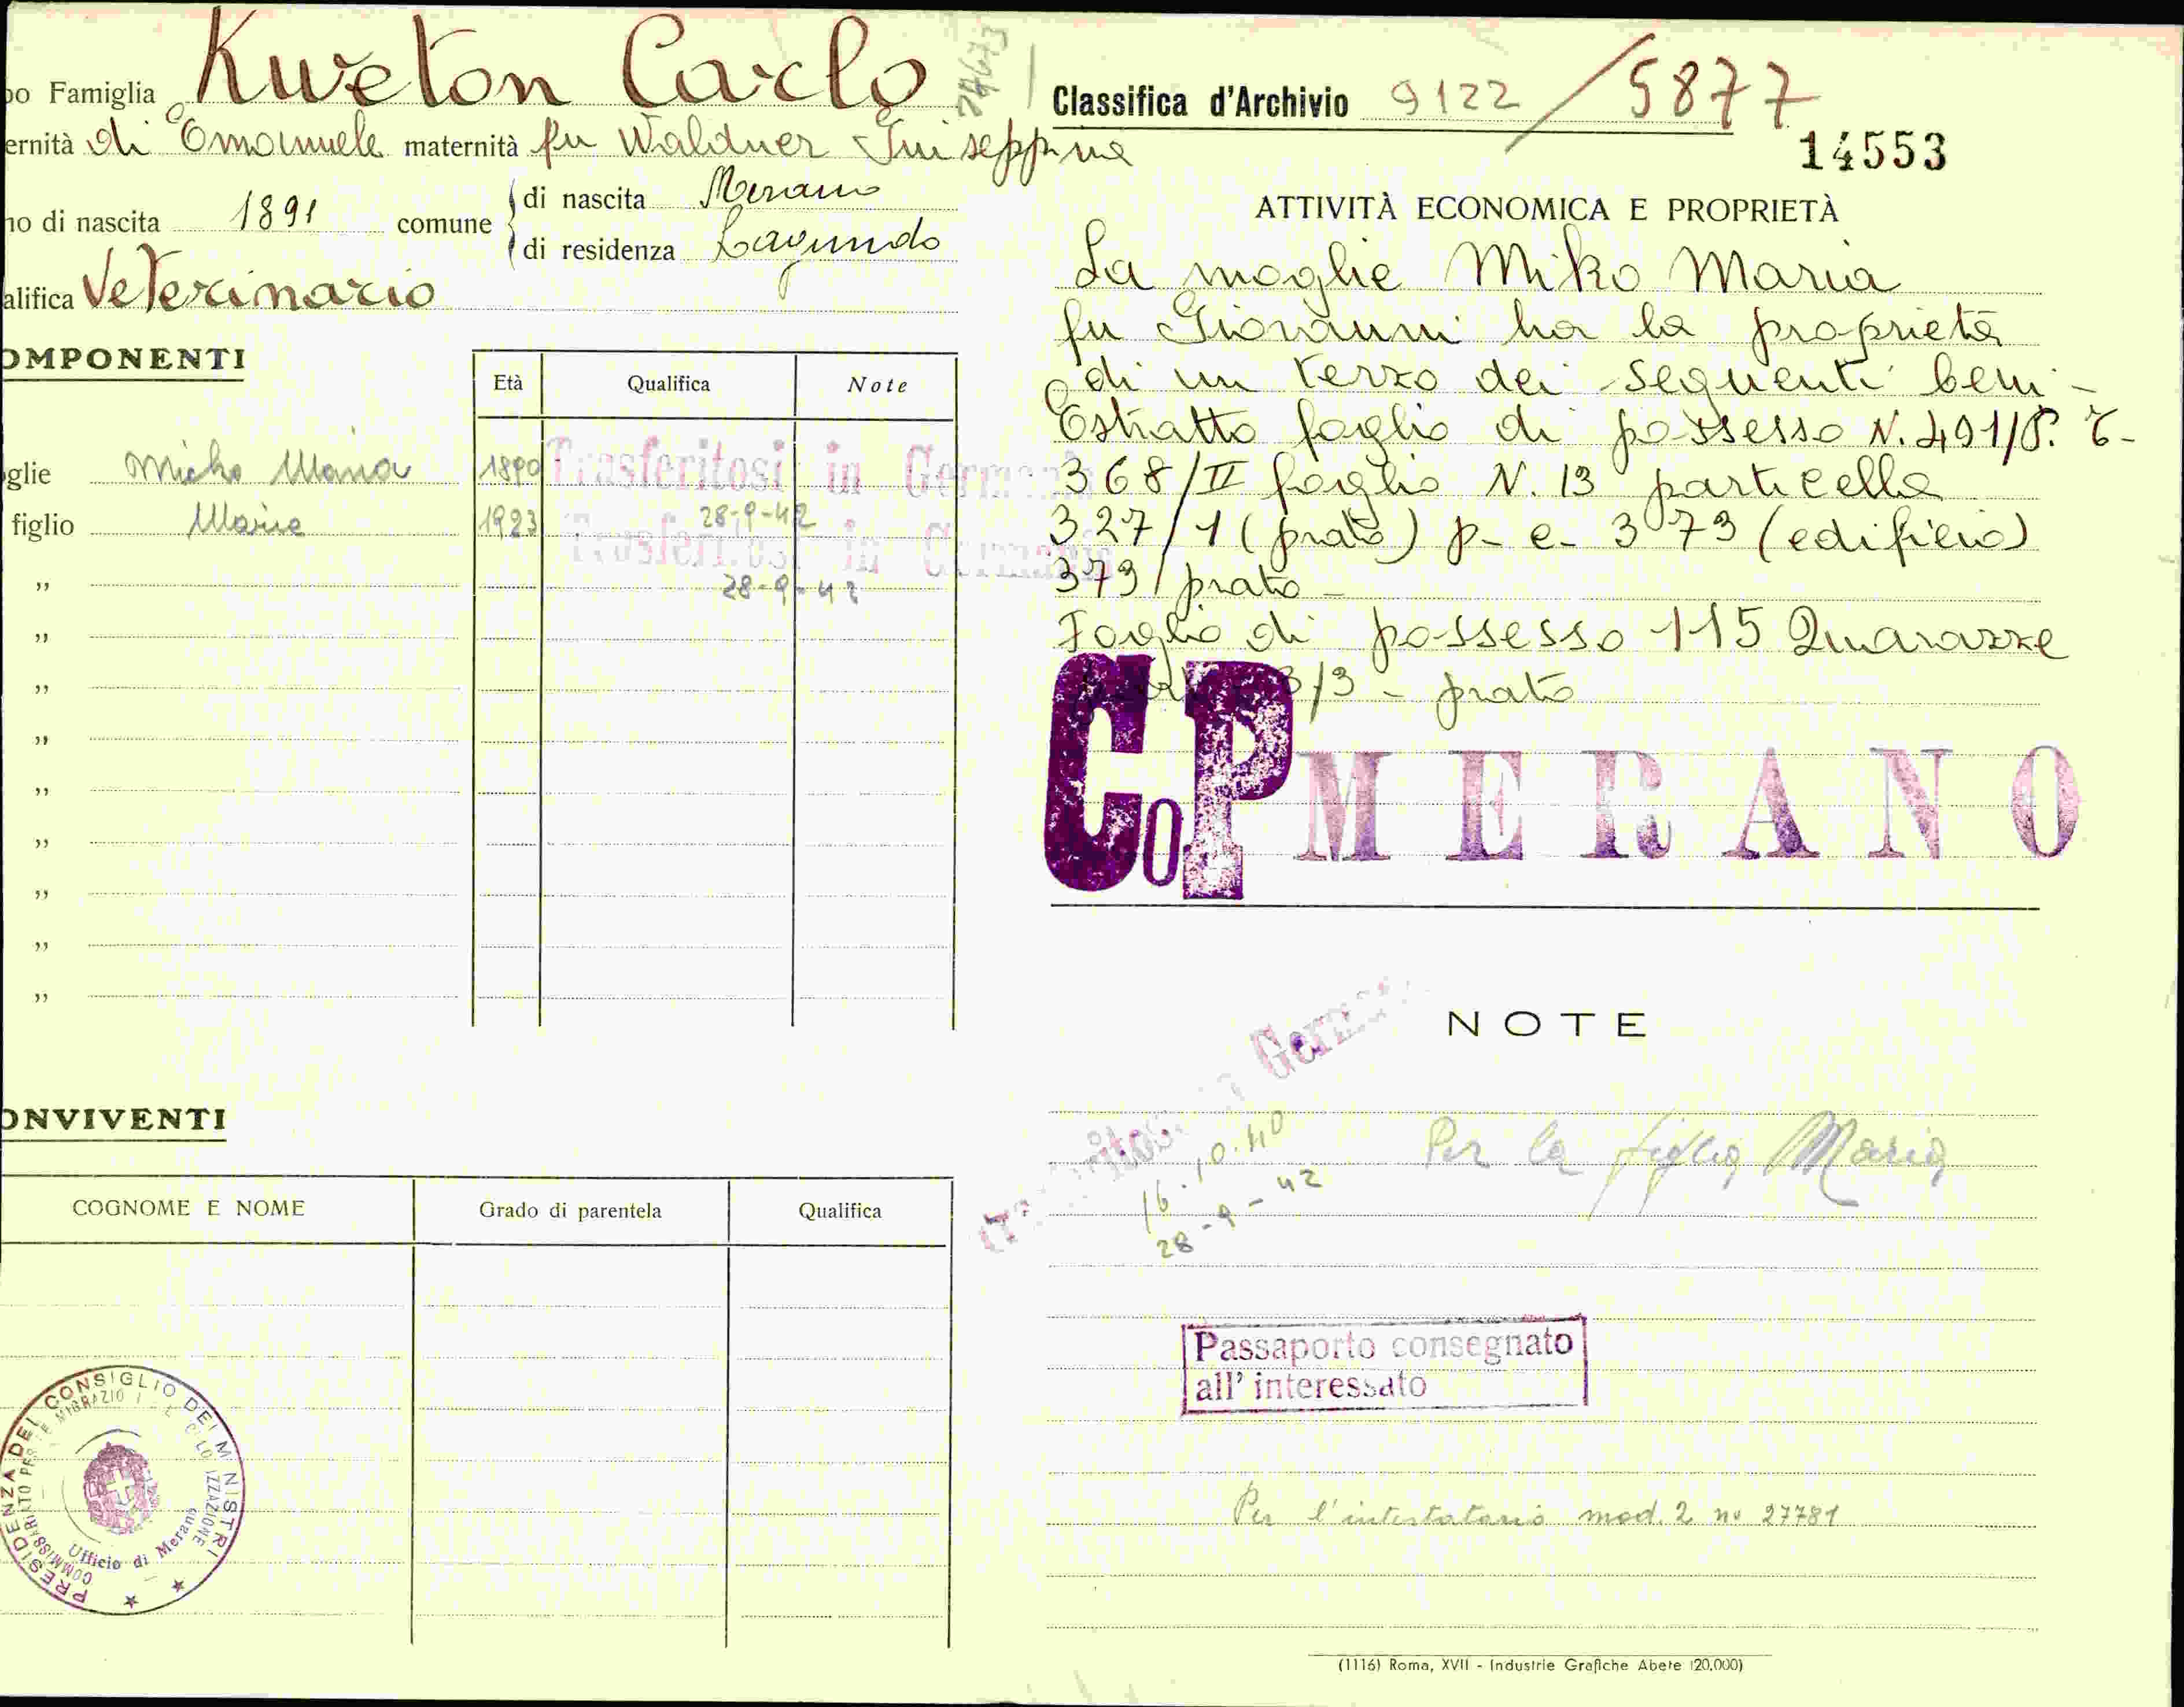 po Famiglia Kweton Carlo
ernità di Emanuele maternità fu Waldner Giuseppina
no di nascita 1891 comune di nascita Merano
di residenza Lagundo
alifica Veterinario
OMPONENTI
Età Qualifica Note
glie Micko Maria 1890 Trasferitosi in Germania
28-9-42
figlio Maria 1923 Trasferitosi in Germania
28-9-42
„
„
„
„
„
„
„
„
„
ONVIVENTI
COGNOME E NOME Grado di parentela Qualifica
PRESIDENZA DEL CONSIGLIO DEI MINISTRI
COMMISSARIATO PER LE MIGRAZIONI E COLONIZZAZIONE
Ufficio di Merano
Classifica d'Archivio 9122 / 5877
14553
ATTIVITÀ ECONOMICA E PROPRIETÀ
La moglie Miko Maria
fu Giovanni ha la proprietà
di un terzo dei seguenti beni -
Estratto foglio di possesso N. 491/P. T-
368/II foglio N. 13 particella
327/1 (prato) p- e- 373 (edificio)
373/ prato -
Foglio di possesso 115 Quarazze
3/3 - prato
CoP MERANO
NOTE
Trasferitosi in Germania
16.10.40
28-9-42
Per la figlia Maria
Passaporto consegnato
all' interessato
Per l'intestatario mod. 2 no 27781
(1116) Roma, XVII - Industrie Grafiche Abete (20,000)